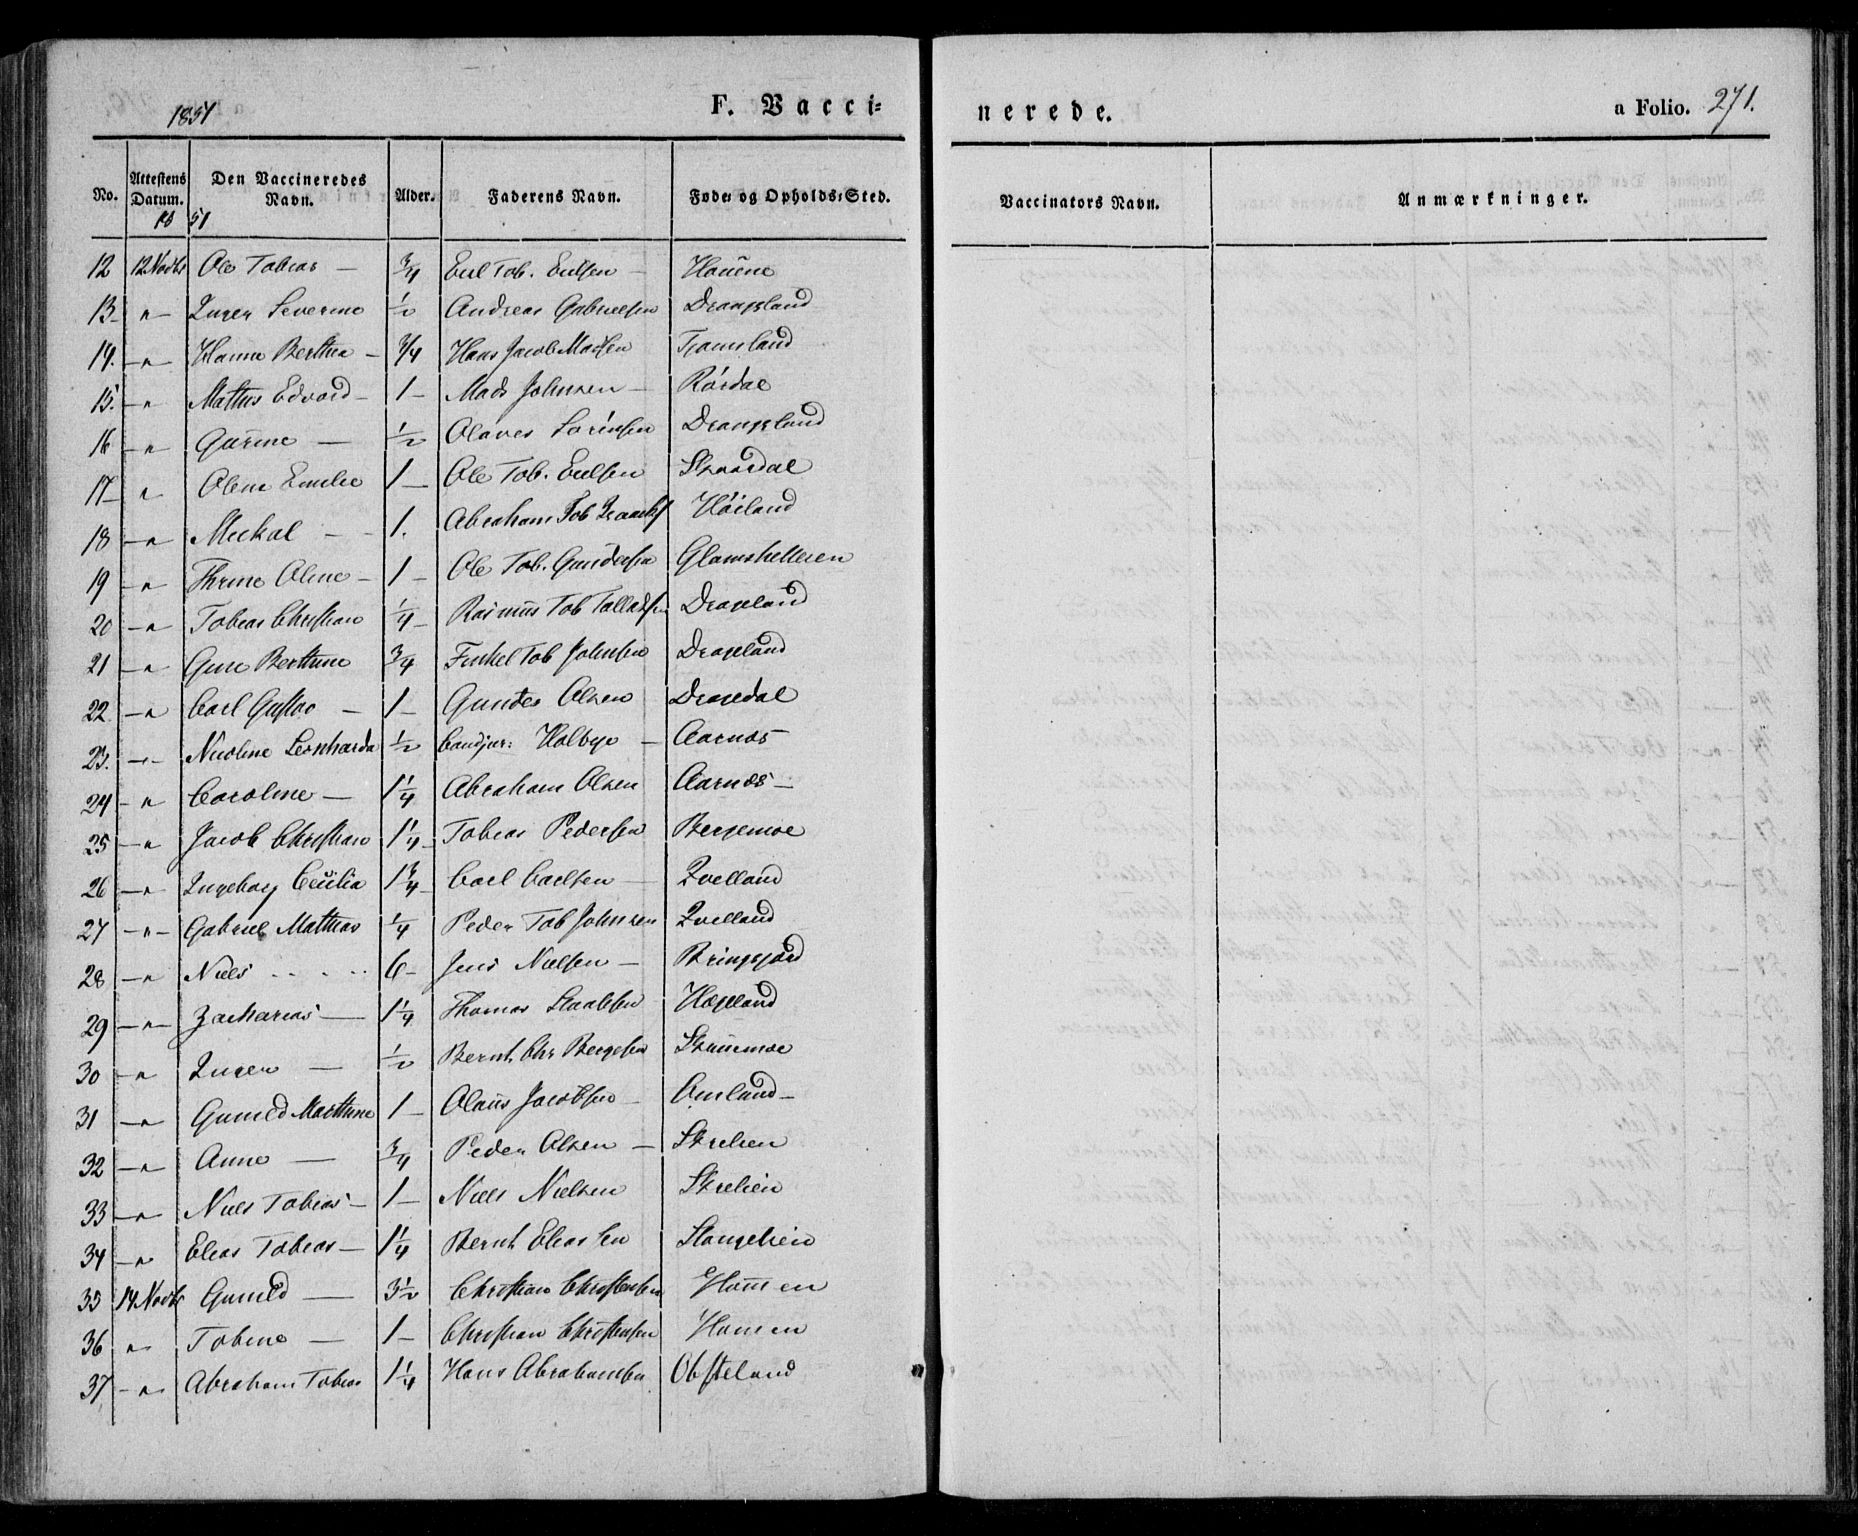 1851 F. Vacci⸗ nerede. a Folio. 271.
No. Attestens Datum. Den Vaccineredes Navn. Alder. Faderens Navn. Føde⸗ og Opholds⸗Sted. Vaccinators Navn. Anmærkninger.
18 51
12 12 Novbr Ole Tobias — 3/4 Eul Tob. Eulsen — Hauene
13 — " — Inger Severine 1/2 Andreas Gabrielsen Drangsland
14. — " — Hanne Berthea — 3/4 Hans Jacob Madsen Tjomsland
15. — " Mathis Edvard — 1 — Mads Johnsen — Rørdal
16 — " Gurine — 1/2 Olaves Sørensen Drangsland
17 — " Olene Emilie 1 — Ole Tob. Eulsen Skaardal
18 — " Meckal — 1. Abraham Tob Høiland
19 — " Thrine Oline — 1 — Ole Tob. Gundersen Glomshelleren
20 — " Tobias Christian 1/4 — Rasmus Tob Tolladsen Drageland
21 — " Guri Berthine 3/4 Tob Johnsen Drageland
22. — " Carl Gustav — 1 — Gunder Olsen Dragedal
23. — " — Nicoline Leonharda 1/2 Candjur: Holbye — Aarnæs
24 — " Caroline — 1 1/4 Abraham Olsen Aarnæs —
25 — " Jacob Christian 1 1/4 — Tobias Pedersen Bergemoe
26 — " Ingeborg Cecilia 1 3/4 — Carl Carlsen — Qvelland
27 — " — Gabriel Mathias 1/4 Peder Tob Johnsen Qvelland
28 — " Niels . . . . 6 — Jens Nielsen — Bringsjord
29 — " — Zacharias — 1 1/4 Thomas Staalesen Hægeland
30 — " Inger — 1/2 Bernt Chr Bergesen
31 — " Gunild Marthine 1 — Olaus Jacobsen — Omland —
32 — " Anne — 3/4 Peder Olsen — Skrelien
33 — " Niels Tobias — 1 — Niels Nielsen Skrelien
34 — " Elias Tobias — 1 1/4 Bernt Eliassen Stangelien
35 14 Novbr Gunild — 3 1/2 Christian Christensen Hommen
36 " Tobine — 1 — Christian Christensen Homen
37 — " Abraham Tobias 1 1/4 Hans Abrahamsen Obsteland